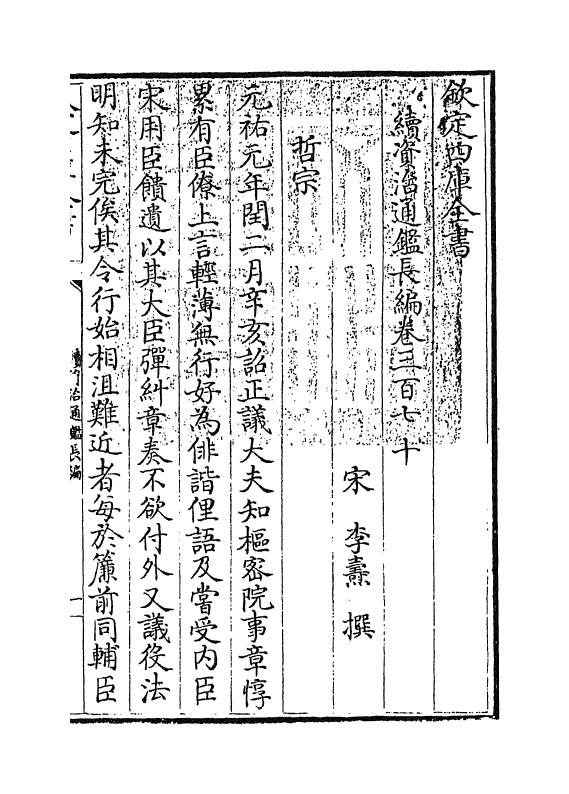 欽定四庫全書
續資治通鑑長編卷三百七十
宋 李燾 撰
哲宗
元祐元年閏二月辛亥詔正議大夫知樞密院事章惇
累有臣僚上言輕薄無行好為俳諧俚語及嘗受內臣
宋用臣饋遺以其大臣彈糾章奏不欲付外又議役法
明知未完俟其令行始相沮難近者每於簾前同輔臣
續資治通鑑長編
一